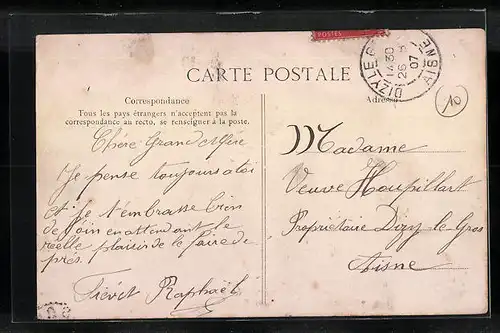 POSTES
DIZY LE G
14 30
26
07
AISNE
CARTE POSTALE
Correspondance
Tous les pays étrangers n'acceptent pas la
correspondance au recto, se renseigner à la poste.
Adresse
10
Chère Grand Mère
Je pense toujours à toi
et je t'embrasse bien
de loin en attendant le
réelle plaisir de le faire de
près.
Tiévet Raphaël
Madame
Veuve Houpillart
Propriétaire Dizy le Gros
Aisne